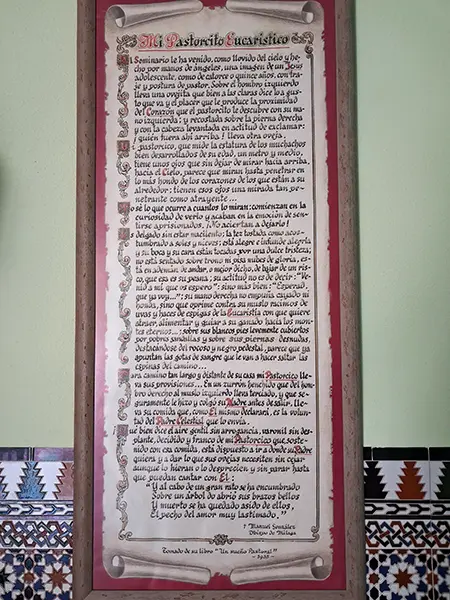 Mi Pastorcito Eucarístico
Al Seminario le ha venido, como llovido del cielo y he-
cho por manos de ángeles, una imagen de un Jesús
adolescente, como de catorce o quince años, con tra-
je y postura de pastor. Sobre el hombro izquierdo
lleva una ovejita que bien a las claras dice lo a gus-
to que va y el placer que le produce la proximidad
del Corazón que el pastorcito le descubre con su ma-
no izquierda: y recostada sobre la pierna derecha
y con la cabeza levantada en actitud de exclamar:
¡quién fuera ahí arriba! lleva otra oveja.
El pastorcico, que mide la estatura de los muchachos
bien desarrollados de su edad, un metro y medio,
tiene unos ojos que sin dejar de mirar hacia arriba,
hacia el Cielo, parece que miran hasta penetrar en
lo más hondo de los corazones de los que están a su
alrededor: tienen esos ojos una mirada tan pe-
netrante como atrayente...
No sé lo que ocurre a cuantos lo miran: comienzan en la
curiosidad de verlo y acaban en la emoción de sen-
tirse aprisionados. ¡No aciertan a dejarlo!
Es delgado sin estar macilento; la tez tostada como acos-
tumbrado a soles y nieves; está alegre e infunde alegría
y su boca y su cara están tocadas por una dulce tristeza;
no está sentado sobre trono ni pisa nubes de gloria, es-
tá en ademán de andar, o mejor dicho, de bajar de un ris-
co, que esa es su peana; su actitud no es de decir: "Ve-
nid a mí que os espero": sino más bien: "Esperad,
que ya voy...": su mano derecha no empuña cayado ni
honda, sino que oprime contra su muslo racimos de
uvas y haces de espigas de la Eucaristía con que quiere
atraer, alimentar y guiar a su ganado hacia los mon-
tes eternos...; sobre sus blancos pies levemente cubiertos
por pobres sandalias y sobre sus piernas desnudas,
destacándose del rocoso y negro pedestal, parece que ya
apuntan las gotas de sangre que le van a hacer saltar las
espinas del camino...
Para camino tan largo y distante de su casa mi Pastorcico lle-
va sus provisiones... En un zurrón henchido que del hom-
bro derecho al muslo izquierdo lleva terciado, y que se-
guramente le hizo y colgó su Madre antes de salir, lle-
va su comida que, como Él mismo declarará, es la volun-
tad del Padre Celestial que lo envía.
Qué bien dice el aire gentil sin arrogancia, varonil sin des-
plante, decidido y franco de mi Pastorcico que, soste-
nido con esa comida, está dispuesto a ir a donde su Padre
quiera y a dar lo que sus ovejas necesiten sin cejar
aunque lo hieran o lo desprecien y sin parar hasta
que puedan cantar con Él:
"Y al cabo de un gran rato se ha encumbrado
Sobre un árbol do abrió sus brazos bellos
Y muerto se ha quedado asido de ellos,
El pecho del amor muy lastimado."
† Manuel González
Obispo de Málaga
Tomado de su libro "Un sueño Pastoral"